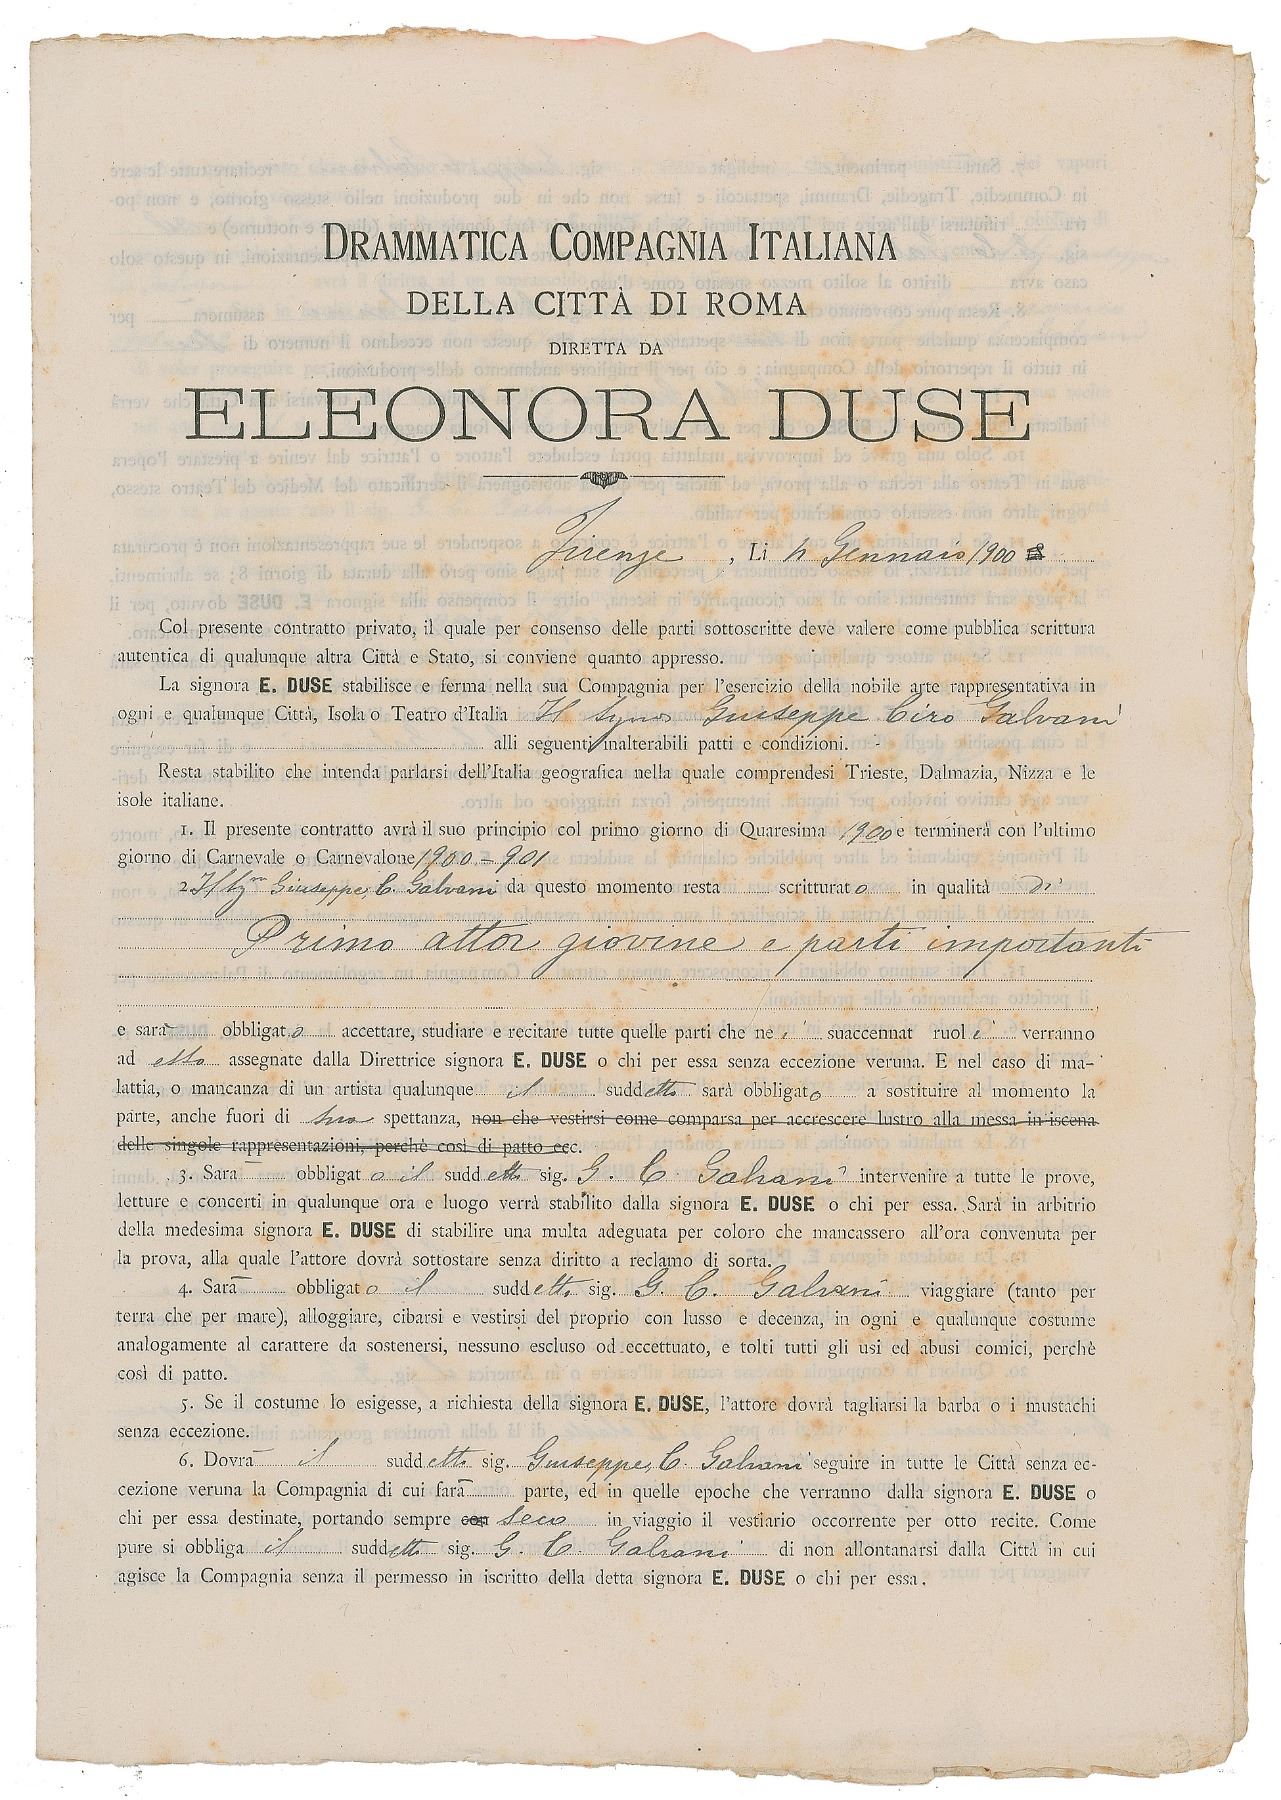 DRAMMATICA COMPAGNIA ITALIANA
DELLA CITTÀ DI ROMA
DIRETTA DA
ELEONORA DUSE
Firenze, Li 4 Gennaio 1900
Col presente contratto privato, il quale per consenso delle parti sottoscritte deve valere come pubblica scrittura
autentica di qualunque altra Città e Stato, si conviene quanto appresso.
La signora E. DUSE stabilisce e ferma nella sua Compagnia per l'esercizio della nobile arte rappresentativa in
ogni e qualunque Città, Isola o Teatro d'Italia Il Sigr Giuseppe Ciro Galvani
alli seguenti inalterabili patti e condizioni.
Resta stabilito che intenda parlarsi dell'Italia geografica nella quale comprendesi Trieste, Dalmazia, Nizza e le
isole italiane.
1. Il presente contratto avrà il suo principio col primo giorno di Quaresima 1900 e terminerà con l'ultimo
giorno di Carnevale o Carnevalone 1900-901
2. Il Sigr Giuseppe C. Galvani da questo momento resta scritturato in qualità di
Primo attor giovine e parti importanti
e sarà obbligato accettare, studiare e recitare tutte quelle parti che ne i suaccennat ruoli verranno
ad esso assegnate dalla Direttrice signora E. DUSE o chi per essa senza eccezione veruna. E nel caso di ma-
lattia, o mancanza di un artista qualunque il suddetto sarà obbligato a sostituire al momento la
parte, anche fuori di sua spettanza, non che vestirsi come comparsa per accrescere lustro alla messa in iscena
delle singole rappresentazioni, perchè così di patto ecc.
3. Sarà obbligato il suddetto sig. G. C. Galvani intervenire a tutte le prove,
letture e concerti in qualunque ora e luogo verrà stabilito dalla signora E. DUSE o chi per essa. Sarà in arbitrio
della medesima signora E. DUSE di stabilire una multa adeguata per coloro che mancassero all'ora convenuta per
la prova, alla quale l'attore dovrà sottostare senza diritto a reclamo di sorta.
4. Sarà obbligato il suddetto sig. G. C. Galvani viaggiare (tanto per
terra che per mare), alloggiare, cibarsi e vestirsi del proprio con lusso e decenza, in ogni e qualunque costume
analogamente al carattere da sostenersi, nessuno escluso od eccettuato, e tolti tutti gli usi ed abusi comici, perchè
così di patto.
5. Se il costume lo esigesse, a richiesta della signora E. DUSE, l'attore dovrà tagliarsi la barba o i mustachi
senza eccezione.
6. Dovrà il suddetto sig. Giuseppe C. Galvani seguire in tutte le Città senza ec-
cezione veruna la Compagnia di cui farà parte, ed in quelle epoche che verranno dalla signora E. DUSE o
chi per essa destinate, portando sempre con seco in viaggio il vestiario occorrente per otto recite. Come
pure si obbliga il suddetto sig. G. C. Galvani di non allontanarsi dalla Città in cui
agisce la Compagnia senza il permesso in iscritto della detta signora E. DUSE o chi per essa.